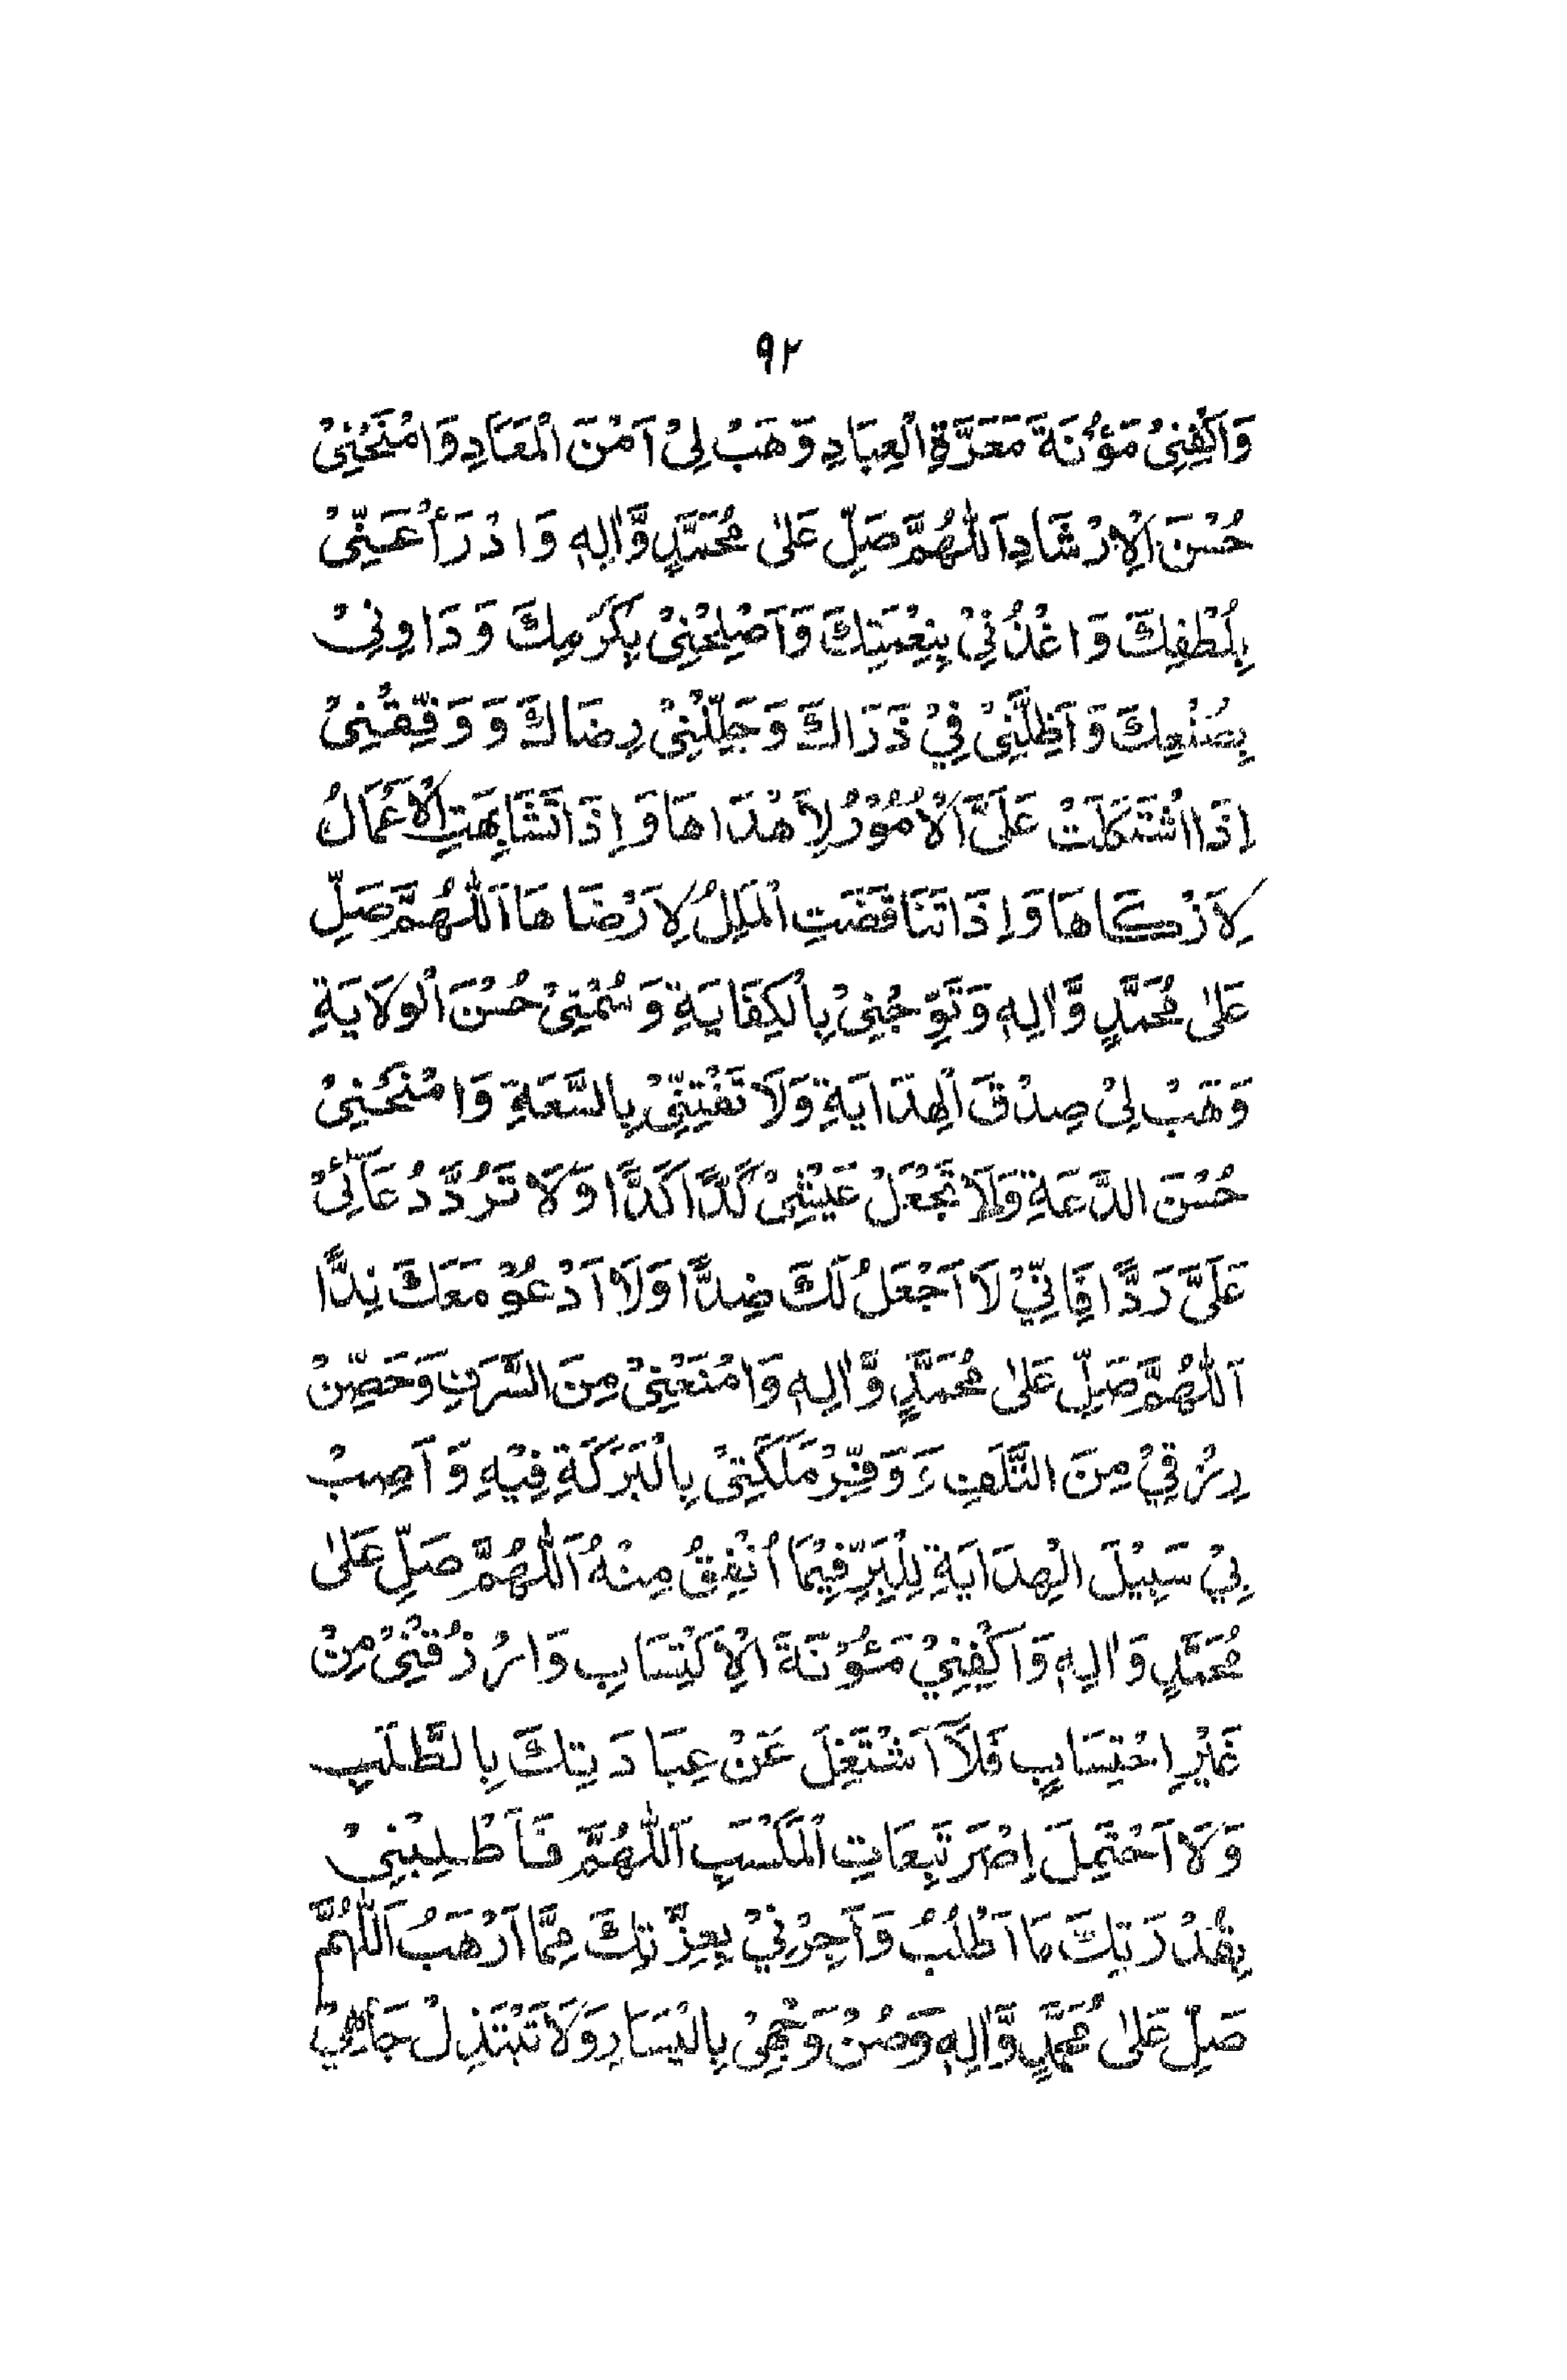 ٩٢
وَاكْفِنِىْ مَؤُنَةَ مَعَرَّةِ الْعِبَادِ وَهَبْ لِىْ اَمْنَ الْمَعَادِ وَامْنَحْنِىْ
حُسْنَ الْاِرْشَادِ اَللّٰهُمَّ صَلِّ عَلٰى مُحَمَّدٍ وَّاٰلِهٖ وَادْرَأْ عَنِّىْ
بِلُطْفِكَ وَاغْذُنِىْ بِنِعْمَتِكَ وَاَصْلِحْنِىْ بِكَرَمِكَ وَدَاوِنِىْ
بِصُنْعِكَ وَاَظِلَّنِىْ فِيْ ذَرَاكَ وَجَلِّلْنِىْ رِضَاكَ وَوَفِّقْنِىْ
اِذَا اشْتَكَلَتْ عَلَىَّ الْاُمُوْرُ لِاَهْدَاهَا وَاِذَا تَشَابَهَتِ الْاَعْمَالُ
لِاَزْكَاهَا وَاِذَا تَنَاقَضَتِ الْمِلَلُ لِاَرْضَاهَا اَللّٰهُمَّ صَلِّ
عَلٰى مُحَمَّدٍ وَّاٰلِهٖ وَتَوِّجْنِىْ بِالْكِفَايَةِ وَسُمْنِىْ حُسْنَ الْوِلَايَةِ
وَهَبْ لِىْ صِدْقَ الْهِدَايَةِ وَلَا تَفْتِنِّىْ بِالسَّعَةِ وَامْنَحْنِىْ
حُسْنَ الدَّعَةِ وَلَا تَجْعَلْ عَيْشِىْ كَدًّا كَدًّا وَلَا تَرُدَّ دُعَآئِىْ
عَلَىَّ رَدًّا فَاِنِّيْ لَا اَجْعَلُ لَكَ ضِدًّا وَلَا اَدْعُوْ مَعَكَ نِدًّا
اَللّٰهُمَّ صَلِّ عَلٰى مُحَمَّدٍ وَّاٰلِهٖ وَامْنَعْنِىْ مِنَ السَّرَفِ وَحَصِّنْ
رِزْقِيْ مِنَ التَّلَفِ وَوَفِّرْ مَلَكَتِىْ بِالْبَرَكَةِ فِيْهِ وَاَصِبْ
بِيْ سَبِيْلَ الْهِدَايَةِ لِلْبِرِّ فِيْمَا اُنْفِقُ مِنْهُ اَللّٰهُمَّ صَلِّ عَلٰى
مُحَمَّدٍ وَاٰلِهٖ وَاكْفِنِيْ مَئُوْنَةَ الْاِكْتِسَابِ وَارْزُقْنِىْ مِنْ
غَيْرِ احْتِسَابٍ فَلَآ اَشْتَغِلَ عَنْ عِبَادَتِكَ بِالطَّلَبِ
وَلَا اَحْتَمِلَ اِصْرَ تَبِعَاتِ الْمَكْسَبِ اَللّٰهُمَّ فَاَطْلِبْنِىْ
بِقُدْرَتِكَ مَا اَطْلُبُ وَاَجِرْنِيْ بِعِزَّتِكَ مِمَّا اَرْهَبُ اَللّٰهُمَّ
صَلِّ عَلٰى مُحَمَّدٍ وَّاٰلِهٖ وَصُنْ وَجْهِىْ بِالْيَسَارِ وَلَا تَبْتَذِلْ جَاهِيْ